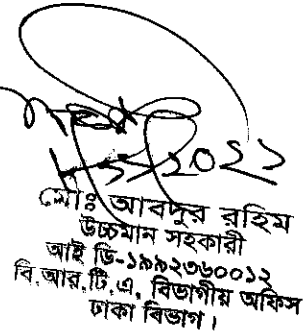 ২০২১
মোঃ আবদুর রহিম
উচ্চমান সহকারী
আই ডি-১৯৯২৩৬০০১২
বি.আর.টি.এ, বিভাগীয় অফিস
ঢাকা বিভাগ।